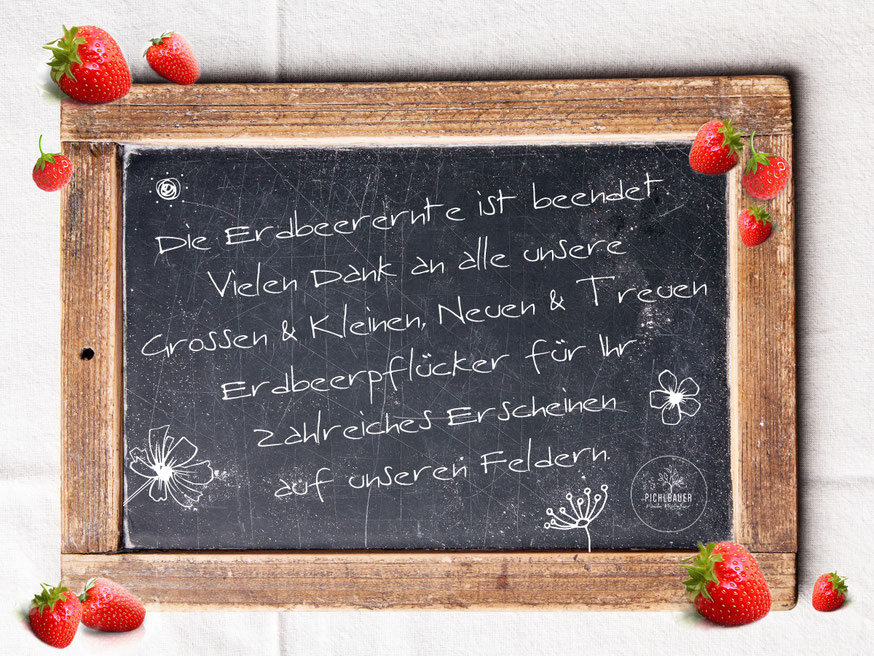 Die Erdbeerernte ist beendet.
Vielen Dank an alle unsere
Grossen & Kleinen, Neuen & Treuen
Erdbeerpflücker für Ihr
zahlreiches Erscheinen
auf unseren Feldern.
PICHLBAUER